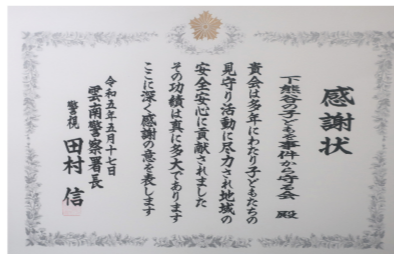 感謝状
下熊谷の子どもを事件から守る会 殿
貴会は多年にわたり子どもたちの
見守り活動に尽力され地域の
安全安心に貢献されました
その功績は真に多大であります
ここに深く感謝の意を表します
令和五年五月十七日
雲南警察署長
警視 田村 信